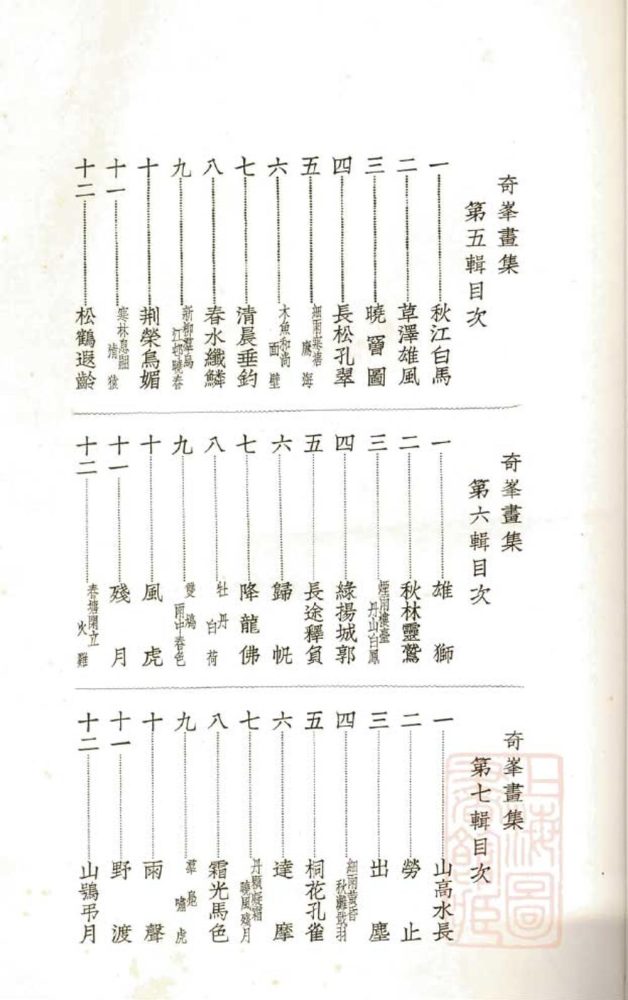 奇峯畫集
第五輯目次
一 秋江白馬
二 草澤雄風
三 曉窗圖
四 長松孔翠
五 細雨寒塘 鷹海
六 木魚和尚 面壁
七 清晨垂釣
八 春水纖鱗
九 新柳羣烏 江邨曉春
十 荆榮鳥媚
十一 寒林息 清猿
十二 松鶴遐齡
奇峯畫集
第六輯目次
一 雄獅
二 秋林靈鷲
三 煙雨樓臺 丹山白鳳
四 綠揚城郭
五 長途釋負
六 歸帆
七 降龍佛
八 牡丹 白荷
九 雙鳩 雨中春色
十 風虎
十一 殘月
十二 春塘閒立 火雞
奇峯畫集
第七輯目次
一 山高水長
二 勞止
三 出塵
四 細雨黃昏 秋灘戢羽
五 桐花孔雀
六 達摩
七 丹顆凝霜 曉風殘月
八 霜光馬色
九 羣鳧 嘯虎
十 雨聲
十一 野渡
十二 山鴞弔月